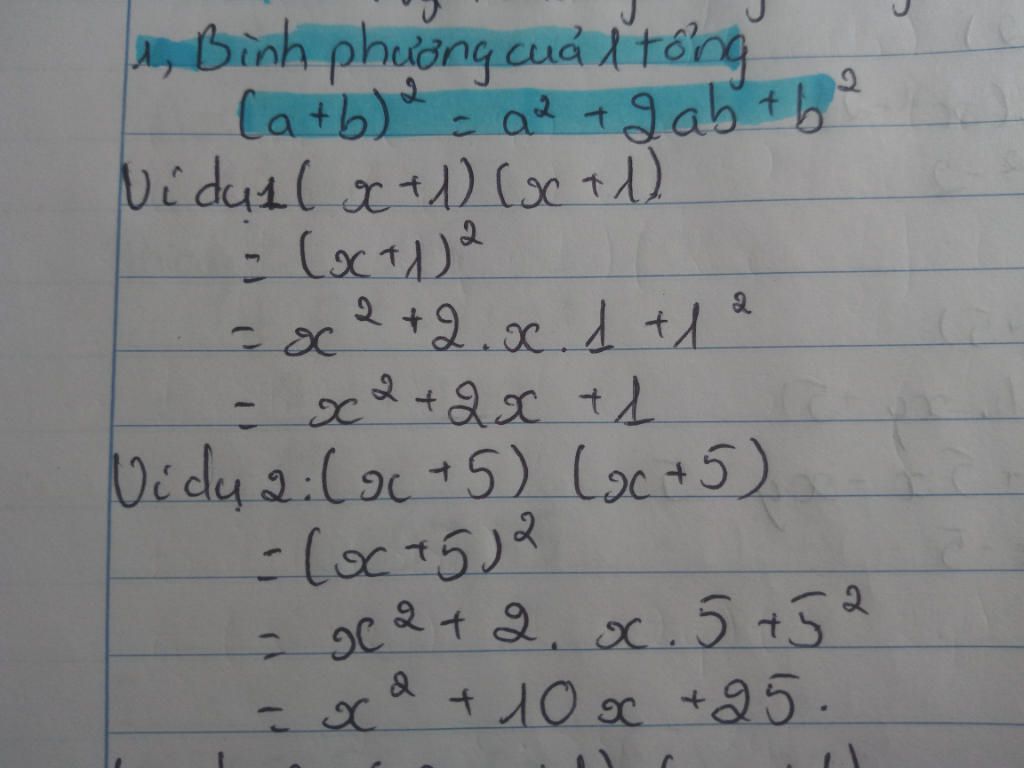 1, Bình phương của 1 tổng
(a+b)² = a² + 2ab + b²
Ví dụ 1 (x+1)(x+1)
= (x+1)²
= x² + 2.x.1 + 1²
= x² + 2x + 1
Ví dụ 2:(x+5) (x+5)
= (x+5)²
= x² + 2. x.5 + 5²
= x² + 10x + 25.